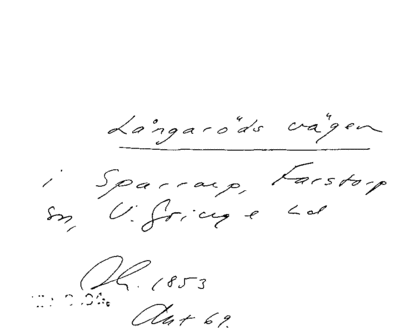 Långaröds vägen
i Sparrarp, Farstorp
sn, V. Göinge hd
Ak. 1853
Akt 69.